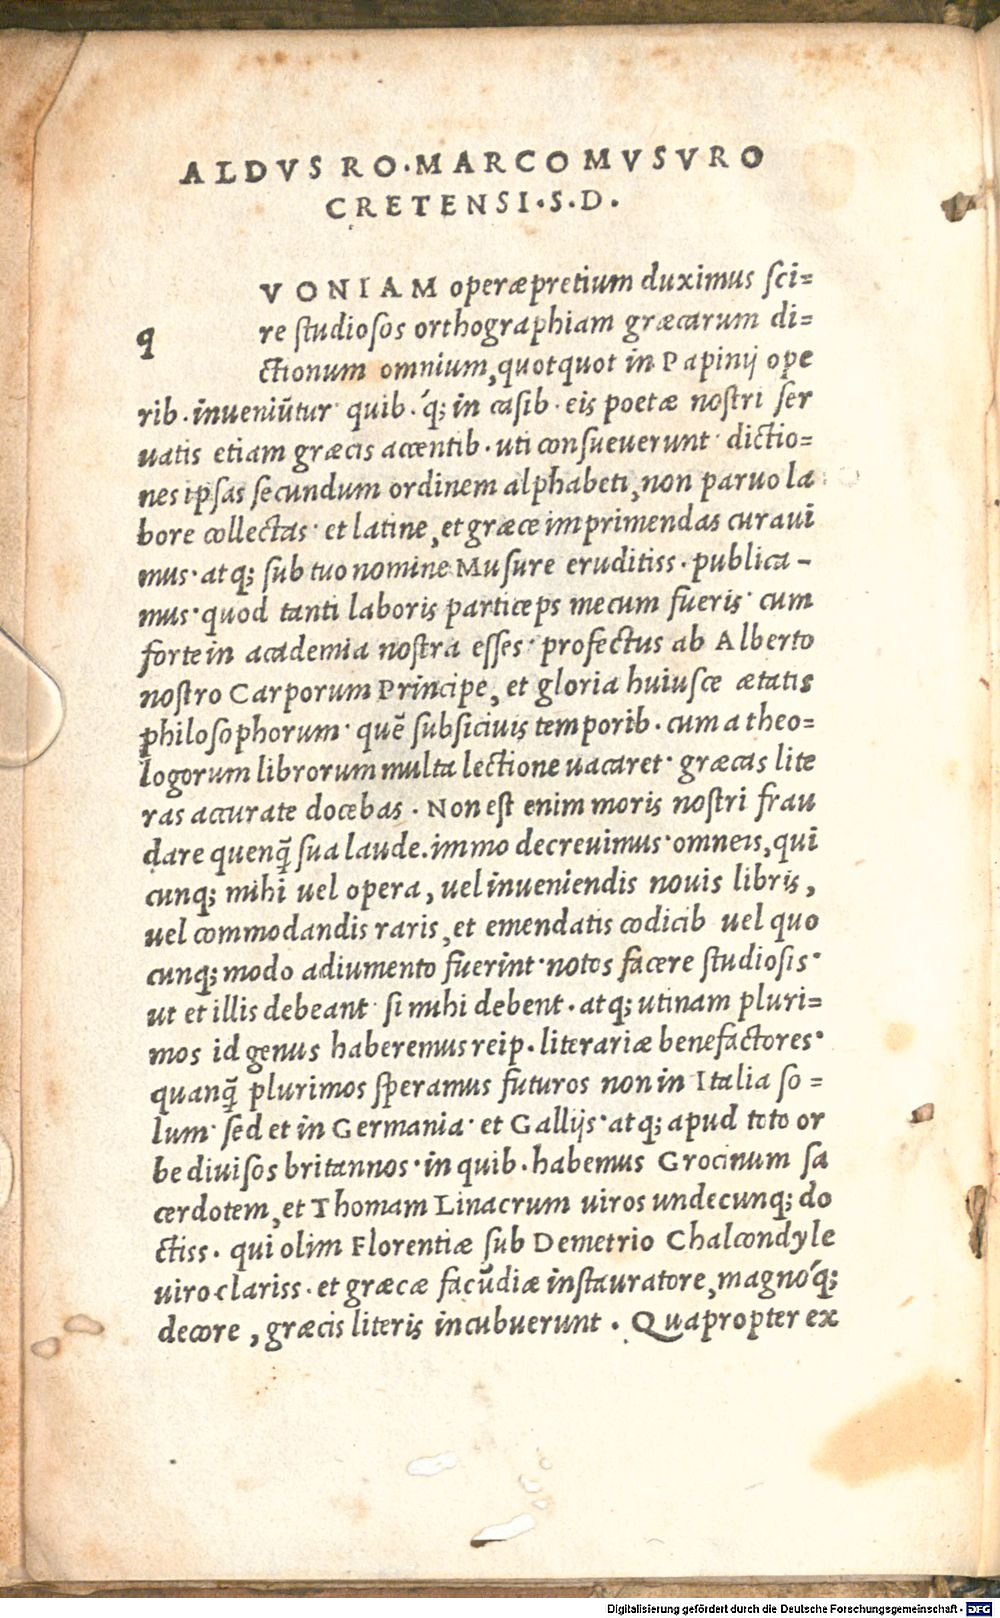 ALDVS RO·MARCO MVSVRO
CRETENSI·S·D·
q VONIAM operæpretium duximus sci=
re studiosos orthographiam græcarum di=
ctionum omnium, quotquot in Papinij ope
rib· inueniũtur· quib· q́; in casib· eis poetæ nostri ser
uatis etiam græcis accentib· uti consueuerunt· dictio=
nes ipsas secundum ordinem alphabeti, non paruo la
bore collectas· et latine, et græce imprimendas curaui
mus· atq; sub tuo nomine Musure eruditiss· publica-
mus· quod tanti laboris particeps mecum fueris· cum
forte in academia nostra esses· profectus ab Alberto
nostro Carporum Principe, et gloria huiusce ætatis
philosophorum· quẽ subsiciuis temporib· cum a theo=
logorum librorum multa lectione uacaret· græcas lite
ras accurate docebas· Non est enim moris nostri frau
dare quenq̃ sua laude. immo decreuimus· omneis, qui
cunq; mihi uel opera, uel inueniendis nouis libris,
uel commodandis raris, et emendatis codicib uel quo
cunq; modo adiumento fuerint· notos facere studiosis·
ut et illis debeant· si mihi debent· atq; utinam pluri=
mos id genus haberemus reip· literariæ benefactores·
quanq̃ plurimos speramus futuros non in Italia so=
lum· sed et in Germania· et Gallijs· atq; apud toto or
be diuisos britannos· in quib· habemus Grocinum sa
cerdotem, et Thomam Linacrum uiros undecunq; do
ctiss· qui olim Florentiæ sub Demetrio Chalcondyle
uiro clariss· et græcæ facũdiæ instauratore, magnoq́;
decore, græcis literis incubuerunt· Quapropter ex
Digitalisierung gefördert durch die Deutsche Forschungsgemeinschaft - DFG